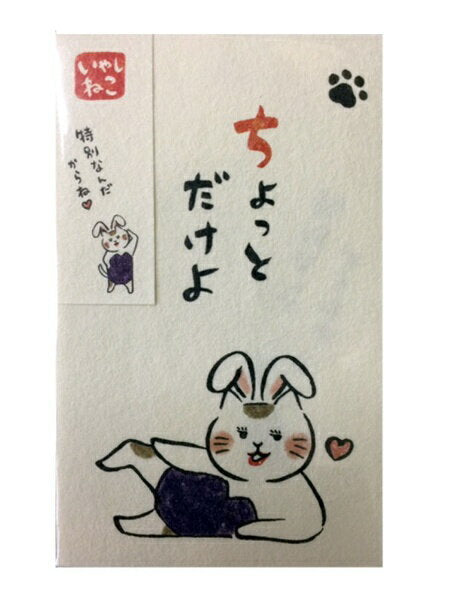 ちょっと
だけよ
いやし
ねこ
特別なんだ
からね♥